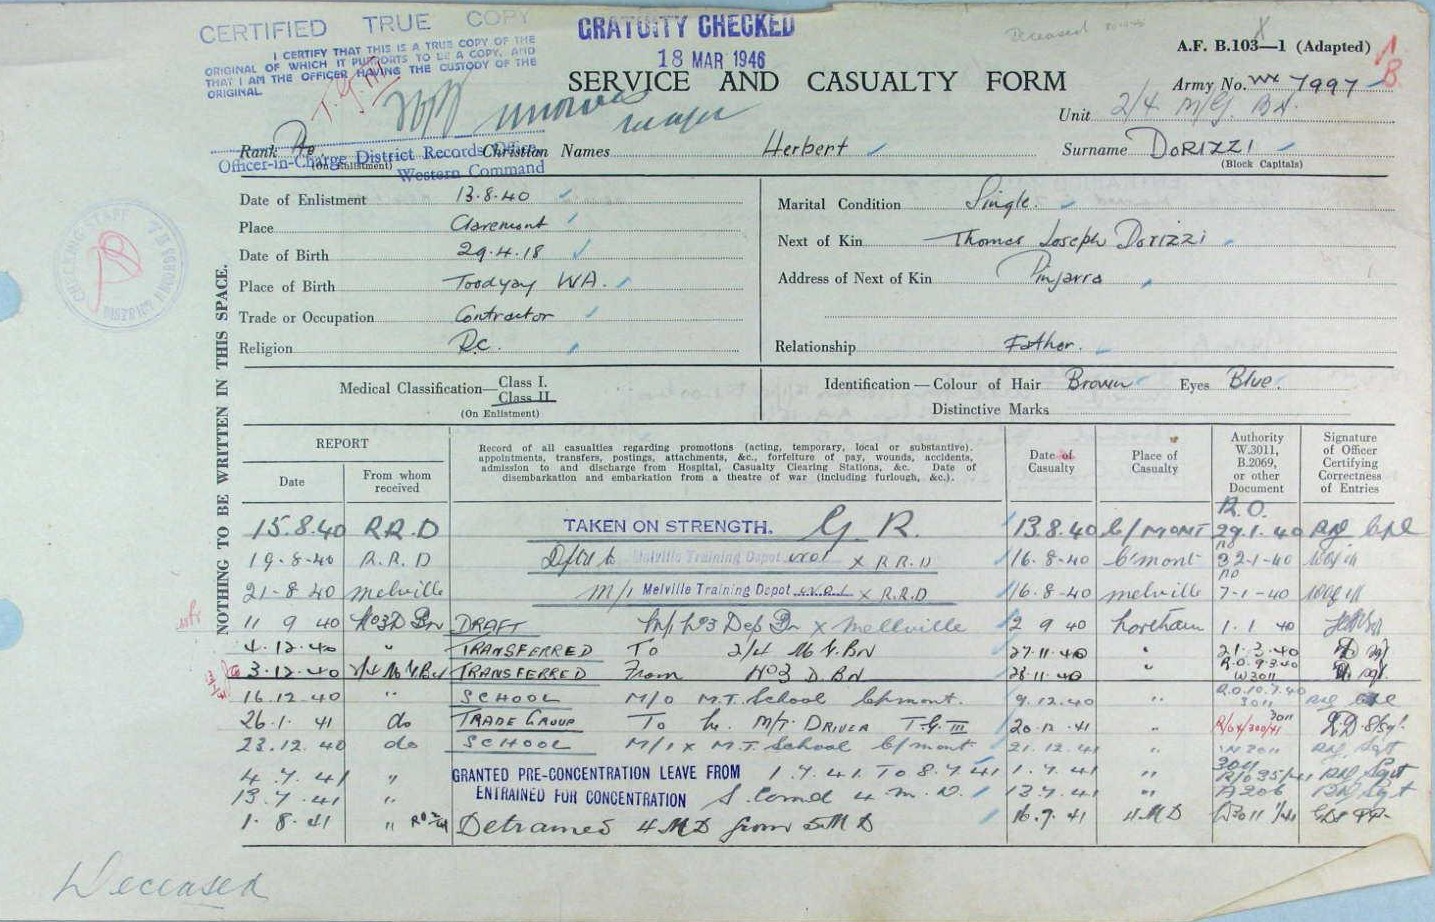 CERTIFIED TRUE COPY
I CERTIFY THAT THIS IS A TRUE COPY OF THE
ORIGINAL OF WHICH IT PURPORTS TO BE A COPY. AND
THAT I AM THE OFFICER HAVING THE CUSTODY OF THE
ORIGINAL
GRATUITY CHECKED
18 MAR 1946
Deceased
A.F. B.103—1 (Adapted)
SERVICE AND CASUALTY FORM
Army No. WX 7997
Unit 2/4 M/G Bn.
Major
Rank Pte Christian Names Herbert Surname DORIZZI
(On Enlistment) (Block Capitals)
Officer-in-Charge District Records Office
Western Command
Date of Enlistment 13.8.40
Place Claremont
Date of Birth 29.4.18
Place of Birth Toodyay WA.
Trade or Occupation Contractor
Religion R.C.
Marital Condition Single.
Next of Kin Thomas Joseph Dorizzi
Address of Next of Kin Pinjarra
Relationship Father.
NOTHING TO BE WRITTEN IN THIS SPACE.
Medical Classification—Class I.
Class II
(On Enlistment)
Identification—Colour of Hair Brown Eyes Blue.
Distinctive Marks
REPORT
Date
From whom received
Record of all casualties regarding promotions (acting, temporary, local or substantive).
appointments, transfers, postings, attachments, &c., forfeiture of pay, wounds, accidents,
admission to and discharge from Hospital, Casualty Clearing Stations, &c. Date of
disembarkation and embarkation from a theatre of war (including furlough, &c.).
Date of Casualty
Place of Casualty
Authority W.3011, B.2069, or other Document
Signature of Officer Certifying Correctness of Entries
15.8.40 R.R.D TAKEN ON STRENGTH. G R. 13.8.40 C/MONT R.O. 29.1.40
19.8.40 R.R.D Melville Training Depot x R.R.D 16.8.40 C'mont 32-1-40
21-8 40 Melville M/I Melville Training Depot x R.R.D 16.8.40 Melville 7-1-40
11 9 40 No3 D Bn DRAFT No3 Dep Bn x Mellville 2 9 40 Northam 1.1 40
4.12.40 " TRANSFERRED To 2/4 M G. BN 27.11.40 " 21.3.40
3.12.40 2/4 M G Bn TRANSFERRED From No 3 D. BN 28.11.40 " R.O.9.3.40 W3011
16.12.40 " SCHOOL M/O M.T. School C/mont. 9.12.40 " R.O.10.7.40 3011
26.1.41 do TRADE GROUP To M/T DRIVER T.G. III 20.12.41 " 3011
23.12.40 do SCHOOL M/I x M.T. School C/mont 21.12.41 " W 3011
4.7.41 " GRANTED PRE-CONCENTRATION LEAVE FROM 1.7.41. TO 8.7.41 1.7.41 " 3011
13.7.41 " ENTRAINED FOR CONCENTRATION S. Comd 4 M.D. 13.7.41 " A206
1.8.41 " Detrained 4 MD from 5 MD 16.7.41 4 MD W3011
Deceased